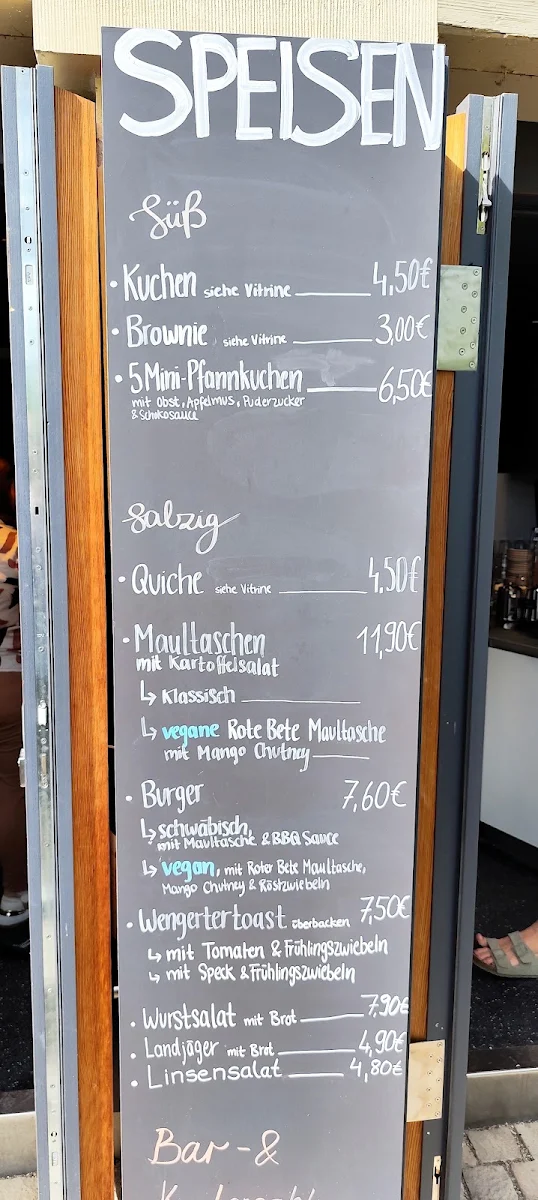 SPEISEN
Süß
· Kuchen siehe Vitrine 4,50€
· Brownie siehe Vitrine 3,00€
· 5 Mini-Pfannkuchen 6,50€
mit Obst, Apfelmus, Puderzucker
& Schokosauce
Salzig
· Quiche siehe Vitrine 4,50€
· Maultaschen 11,90€
mit Kartoffelsalat
↳ Klassisch
↳ vegane Rote Bete Maultasche
mit Mango Chutney
· Burger 7,60€
↳ schwäbisch,
mit Maultasche & BBQ Sauce
↳ vegan, mit Roter Bete Maultasche,
Mango Chutney & Röstzwiebeln
· Wengertertoast überbacken 7,50€
↳ mit Tomaten & Frühlingszwiebeln
↳ mit Speck & Frühlingszwiebeln
· Wurstsalat mit Brot 7,90€
· Landjäger mit Brot 4,90€
· Linsensalat 4,80€
Bar- &